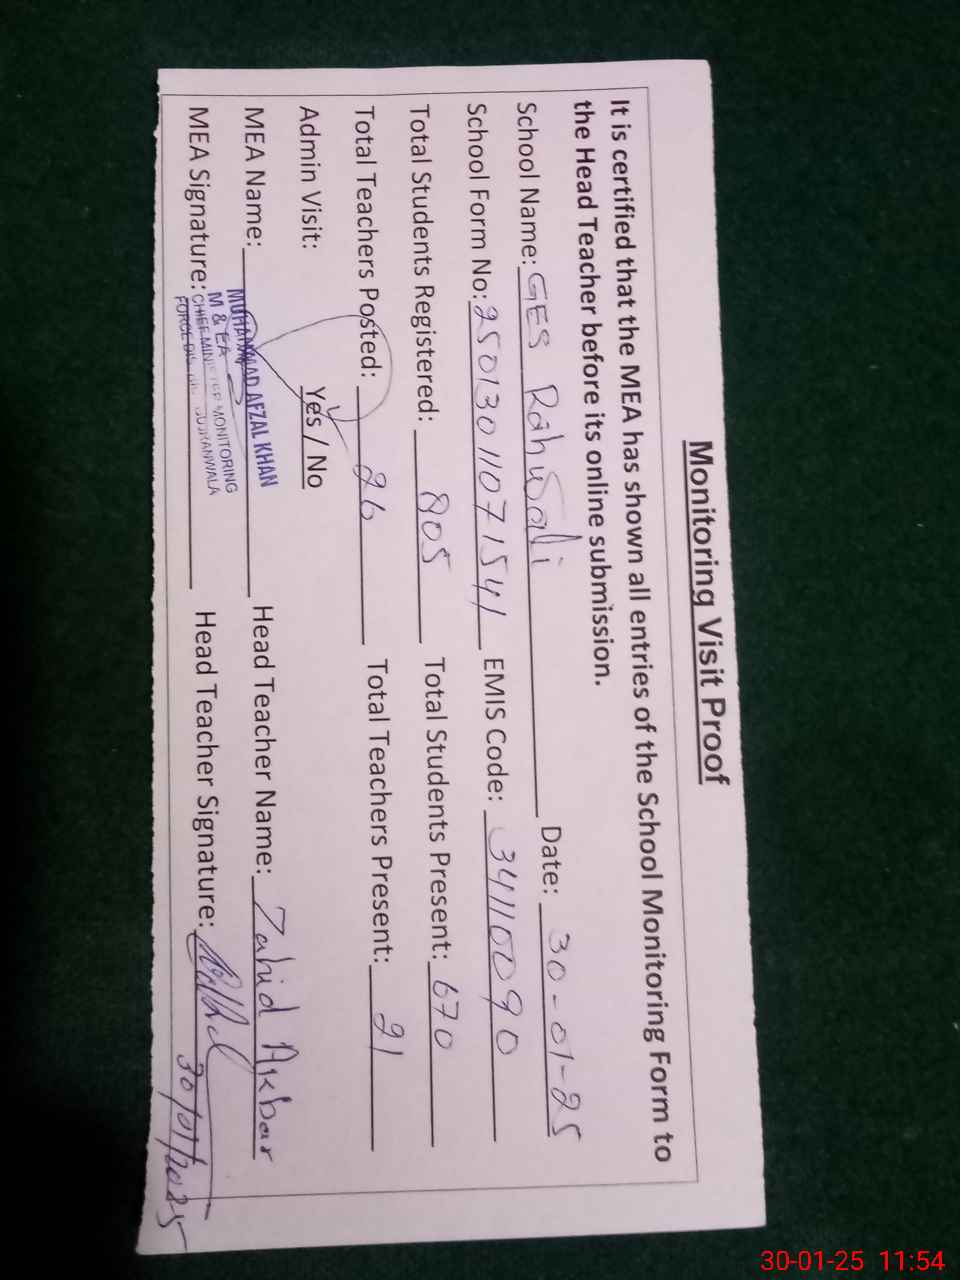 Monitoring Visit Proof
It is certified that the MEA has shown all entries of the School Monitoring Form to
the Head Teacher before its online submission.
School Name: GES Rahwali Date: 30-01-25
School Form No: 25013011071541 EMIS Code: 34110090
Total Students Registered: 805 Total Students Present: 670
Total Teachers Posted: 26 Total Teachers Present: 21
Admin Visit: Yes / No
MEA Name: Head Teacher Name: Zahid Akbar
MUHAMMAD AFZAL KHAN
M & EA
CHIEF MINISTER MONITORING
FORCE GUJRANWALA
MEA Signature: Head Teacher Signature:
30/01/2025
30-01-25 11:54